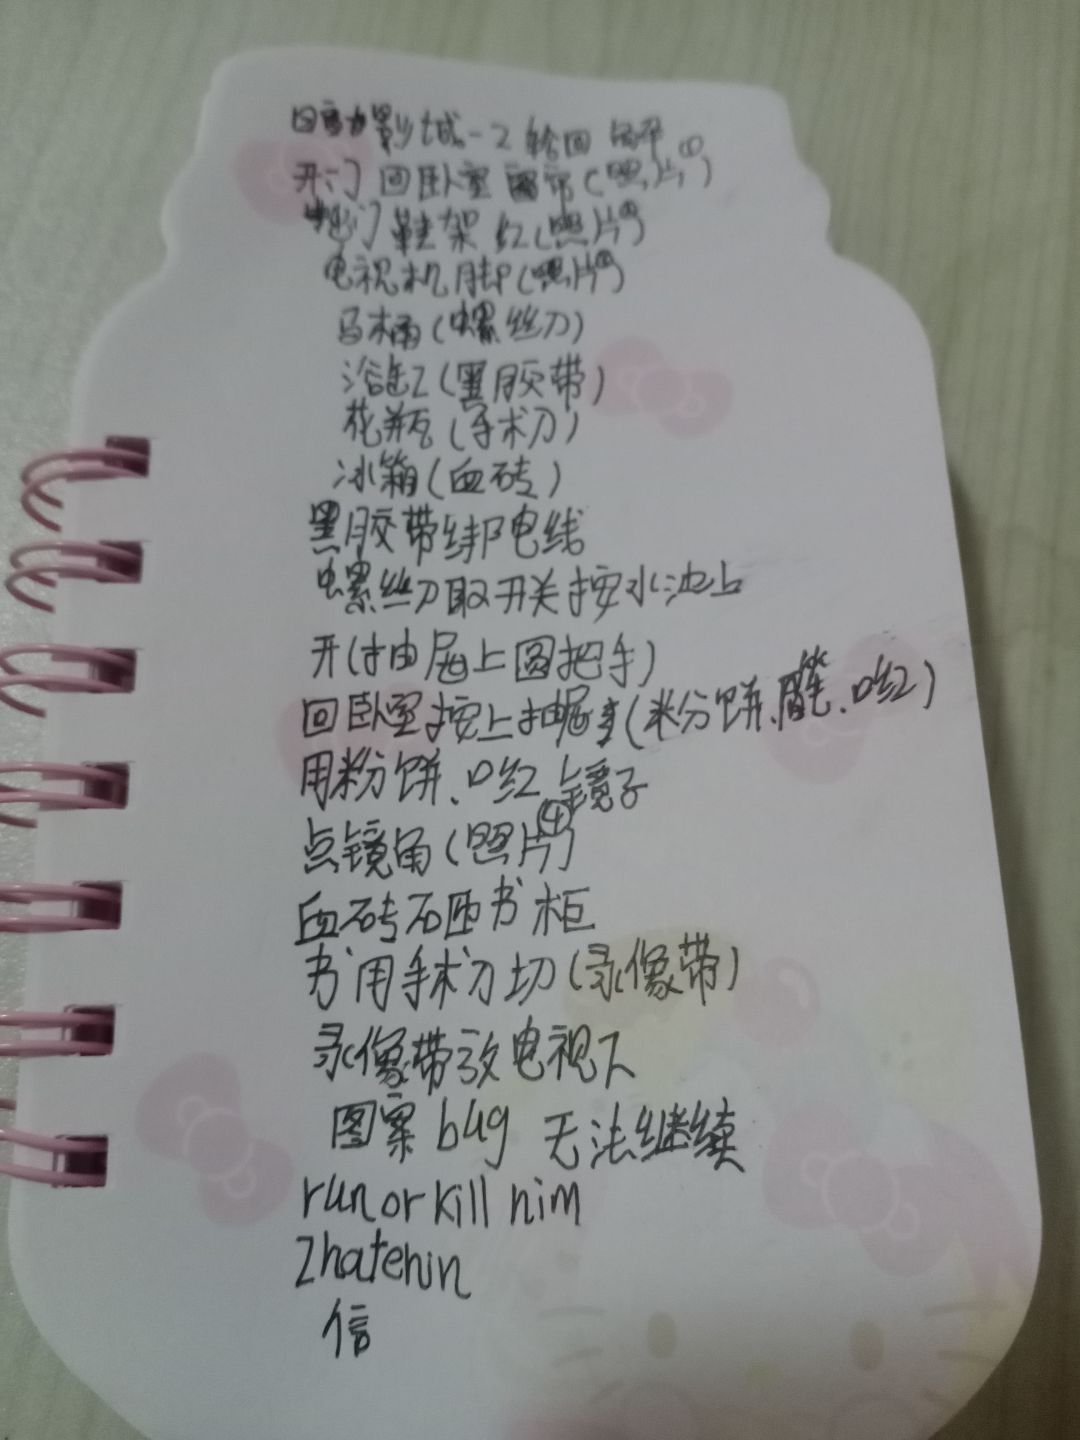 影城-2 轮回
开门 回卧室 窗帘(照片①)
门 鞋架 红(照片②)
电视机脚(照片③)
马桶(螺丝刀)
浴缸(黑胶带)
花瓶(手术刀)
冰箱(血砖)
黑胶带绑电线
螺丝刀取开关按水池上
开(抽屉上圆把手)
回卧室按上抽屉(粉饼、口红)
用粉饼、口红 镜子
点镜角(照片④)
血砖石匝书柜
书用手术刀切(录像带)
录像带放电视下
图案 bug 无法继续
run or kill nim
2hatenin
信